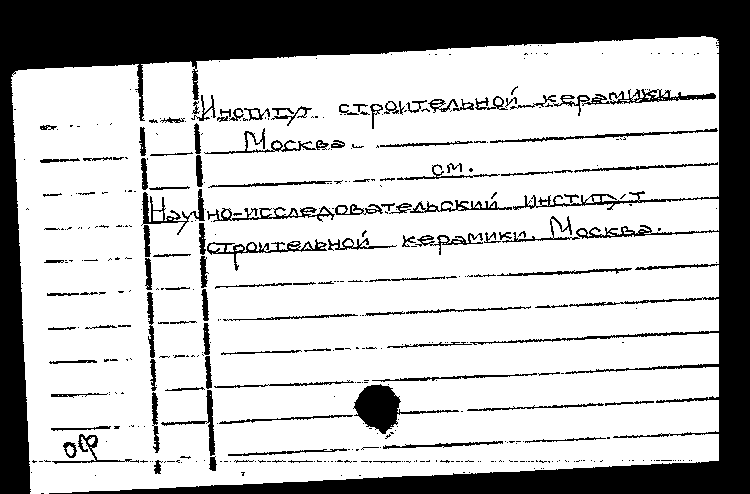 Институт строительной керамики.
Москва.
см.
Научно-исследовательский институт
строительной керамики. Москва.